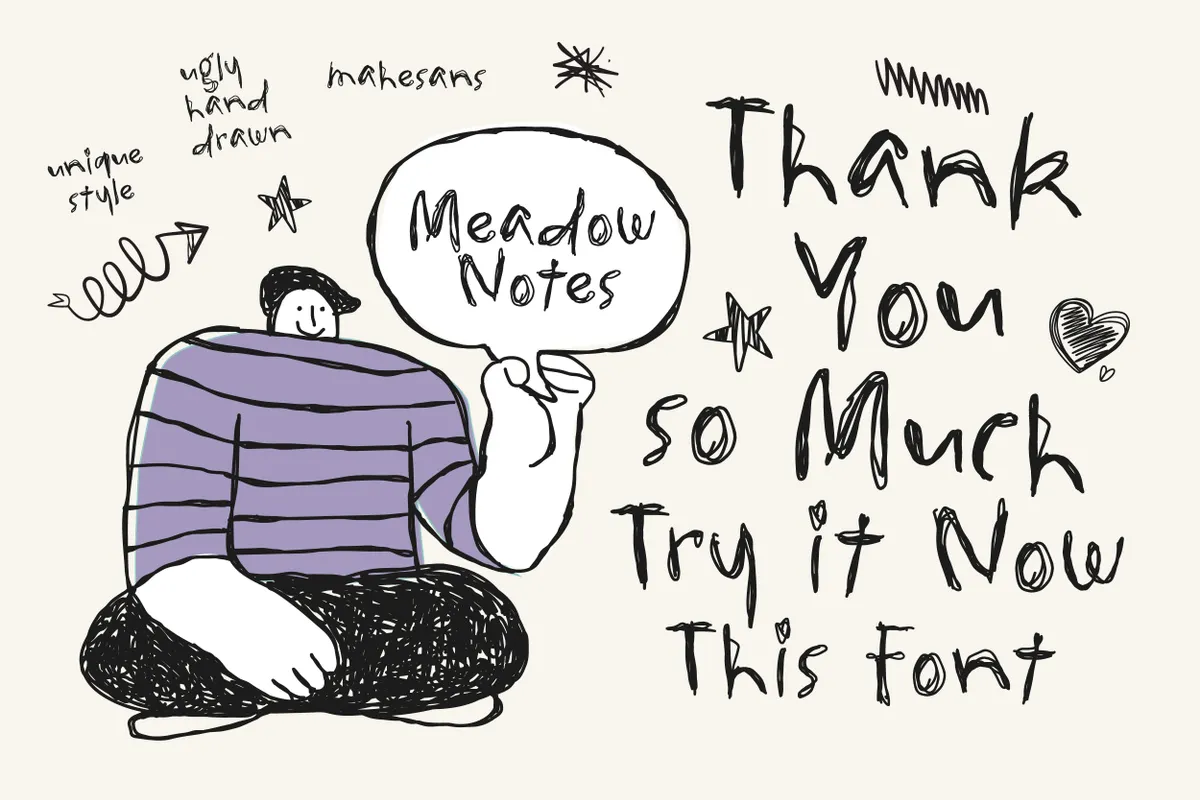 ugly
hand
drawn
mahesans
unique
style
Meadow
Notes
Thank
You
so Much
Try it Now
This Font